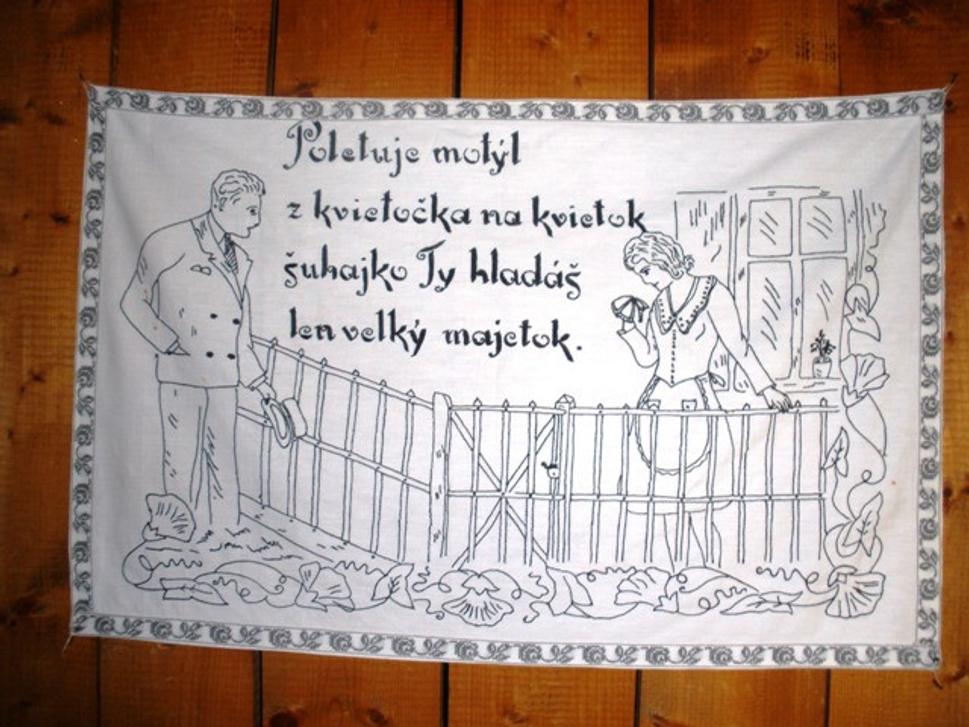 Poletuje motýl
z kvietočka na kvietok
šuhajko Ty hladáš
len velký majetok.